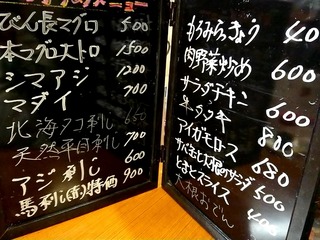 メニュー
びん長マグロ 500
本マグロ大トロ 1500
シマアジ 1200
マダイ 700
北海タコ刺し 650
天然平目刺し 700
アジ刺し 600
馬刺し(赤)特価 900
からみらっきょう 40
肉野菜炒め 600
サラダチキン 600
牛タタキ 800
アイガモロース 680
さばむし大根のサラダ 500
とまとスライス 400
大根おでん